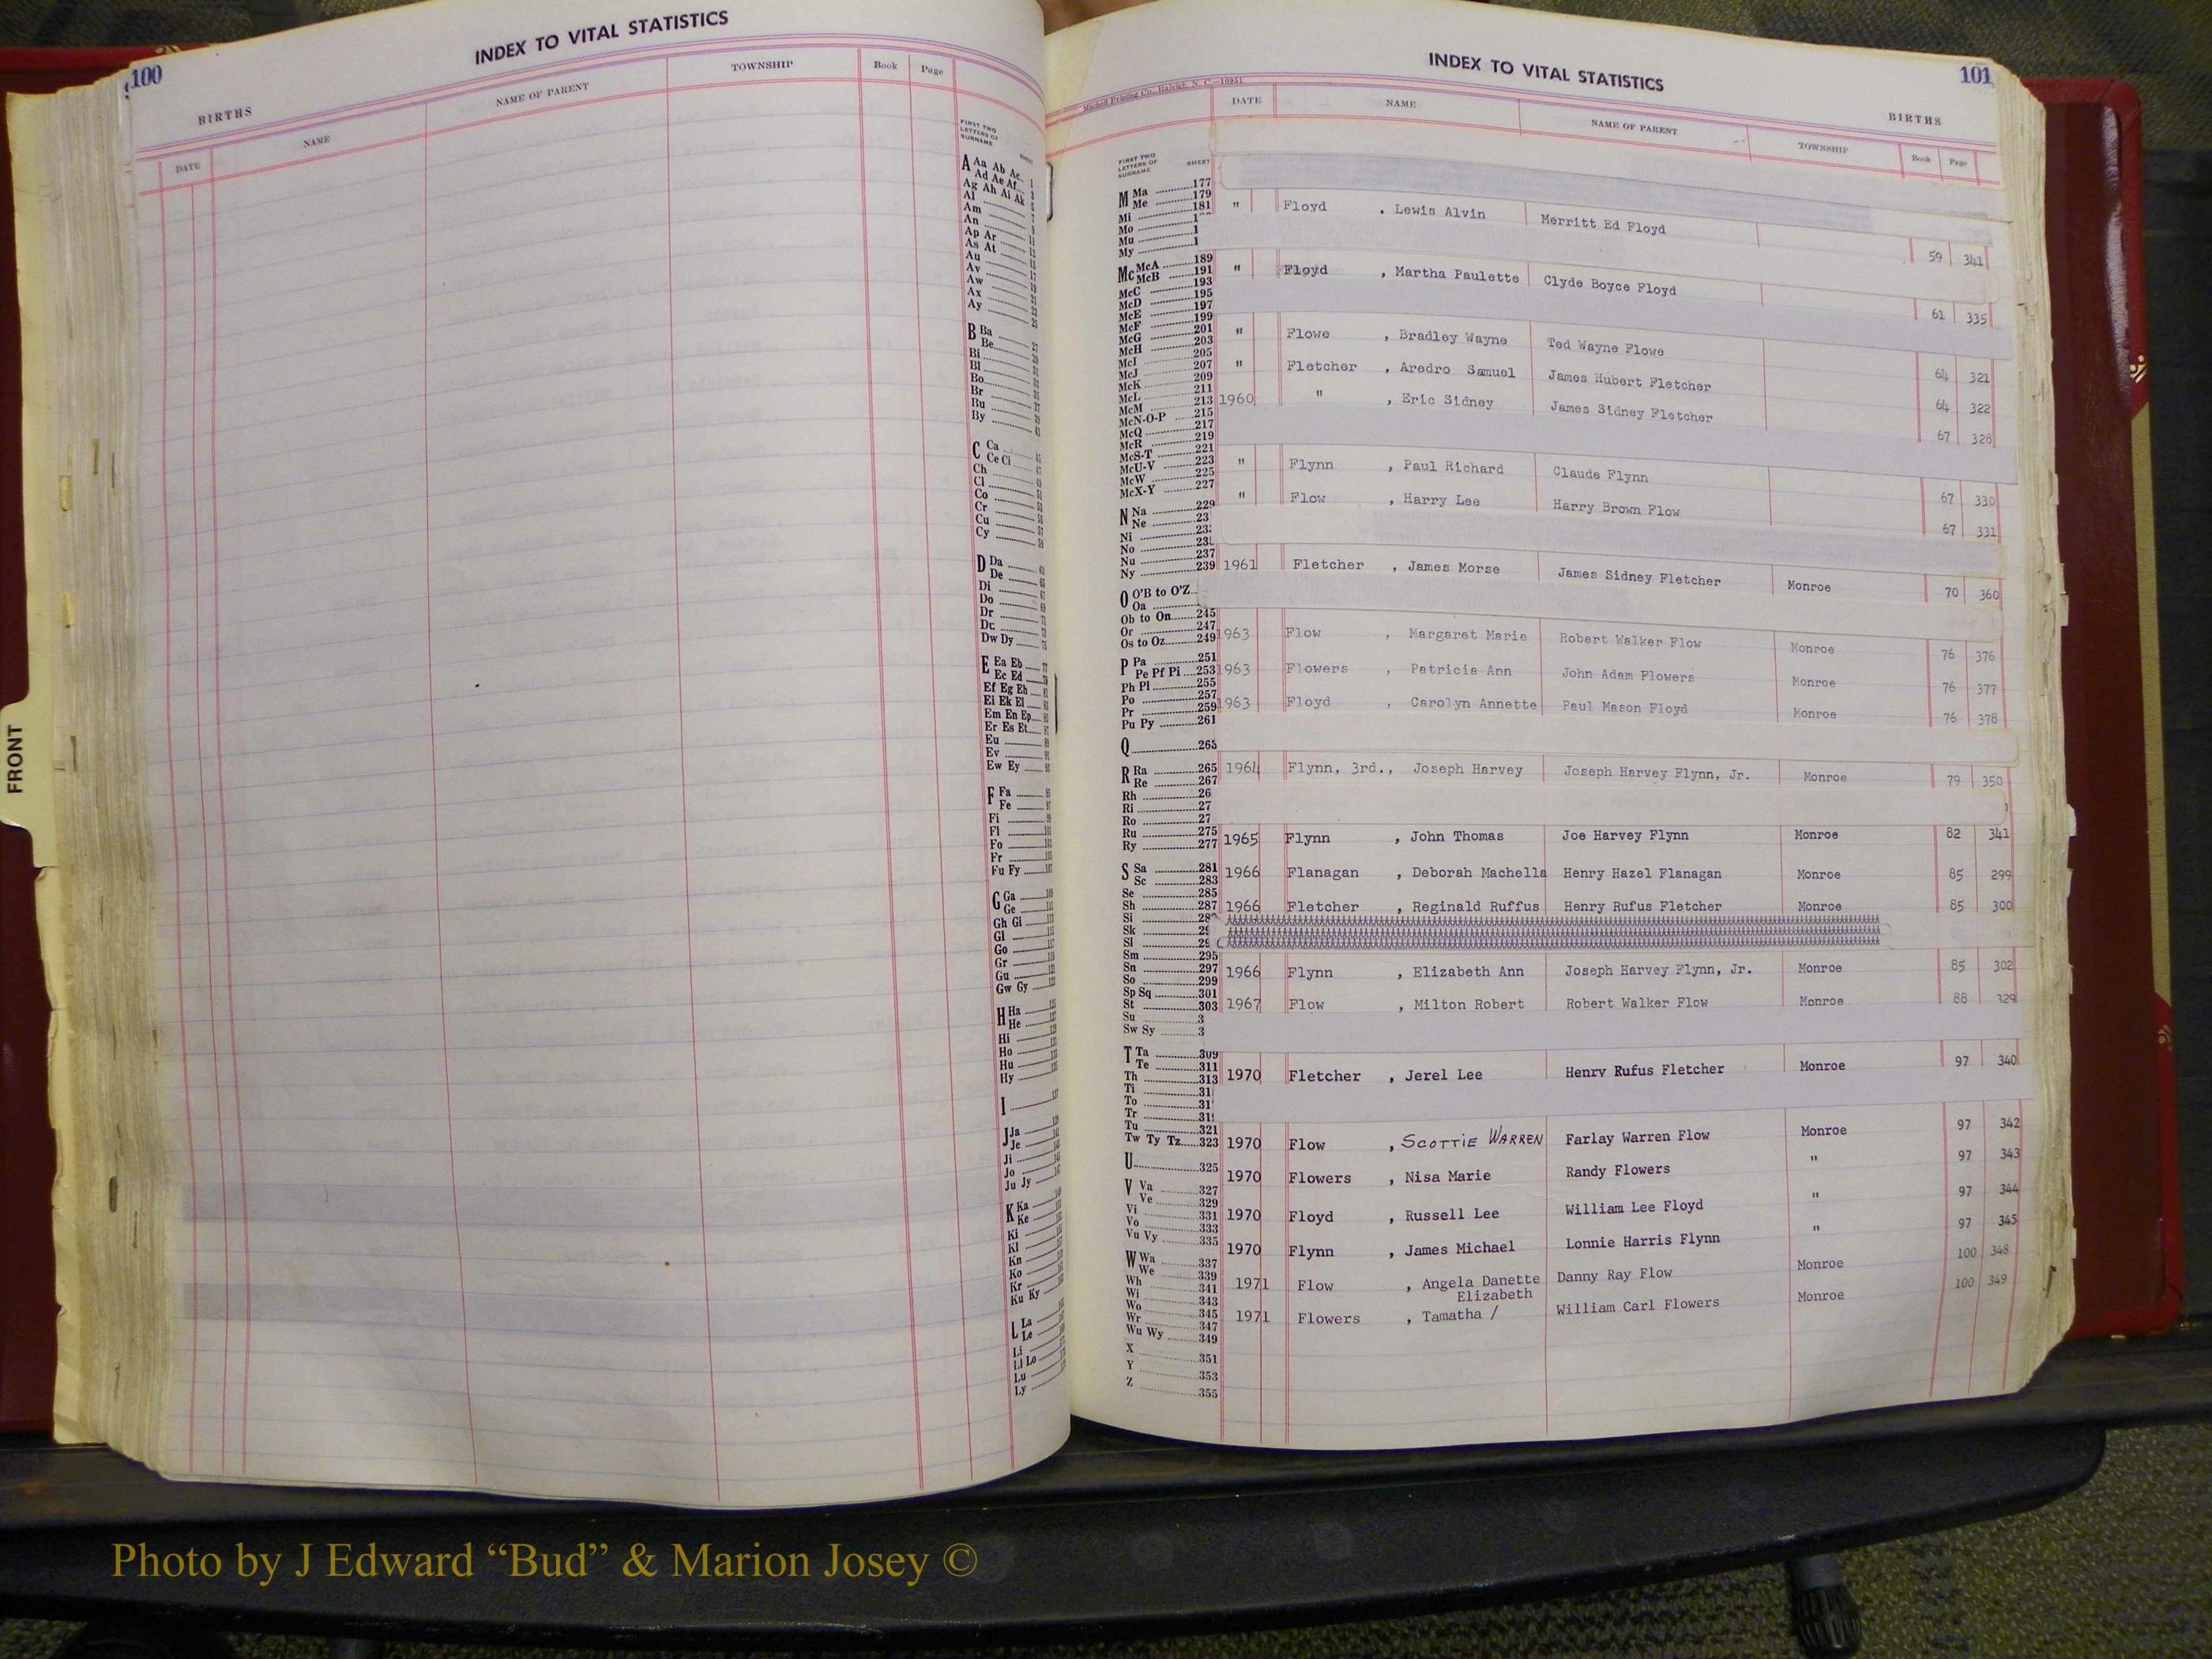 100
INDEX TO VITAL STATISTICS
BIRTHS
DATE NAME NAME OF PARENT TOWNSHIP Book Page
FIRST TWO
LETTERS OF
SURNAME
A Aa Ab Ac
Ad Ae Af
Ag Ah Ai Ak
Al
Am
An
Ap Ar
As At
Au
Av
Aw
Ax
Ay
B Ba
Be
Bi
Bl
Bo
Br
Bu
By
C Ca
Ce Ci
Ch
Cl
Co
Cr
Cu
Cy
D Da
De
Di
Do
Dr
Du
Dw Dy
E Ea Eb
Ec Ed
Ef Eg Eh
Ei Ek El
Em En Ep
Er Es Et
Eu
Ev
Ew Ey
F Fa
Fe
Fi
Fl
Fo
Fr
Fu Fy
G Ga
Ge
Gh Gi
Gl
Go
Gr
Gu
Gw Gy
H Ha
He
Hi
Ho
Hu
Hy
I
J Ja
Je
Ji
Jo
Ju Jy
K Ka
Ke
Ki
Kl
Kn
Ko
Kr
Ku Ky
L La
Le
Li
Ll Lo
Lu
Ly
FRONT
INDEX TO VITAL STATISTICS
101
Mitchell Printing Co., Raleigh, N. C.—16951
BIRTHS
DATE NAME NAME OF PARENT TOWNSHIP Book Page
FIRST TWO
LETTERS OF
SURNAME SHEET
M Ma 177
Me 179
Mi 181
Mo
Mu
My
Mc McA 189
McB 191
McC 193
McD 195
McE 197
McF 199
McG 201
McH 203
McI 205
McJ 207
McK 209
McL 211
McM 213
McN-O-P 215
McQ 217
McR 219
McS-T 221
McU-V 223
McW 225
McX-Y 227
N Na 229
Ne
Ni
No
Nu 237
Ny 239
O O'B to O'Z
Oa
Ob to On 245
Or 247
Os to Oz 249
P Pa 251
Pe Pf Pi 253
Ph Pl 255
Po 257
Pr 259
Pu Py 261
Q 263
R Ra 265
Re 267
Rh
Ri
Ro
Ru 275
Ry 277
S Sa 281
Sc 283
Se 285
Sh 287
Si
Sk
Sl
Sm 295
Sn 297
So 299
Sp Sq 301
St 303
Su
Sw Sy
T Ta 309
Te 311
Th 313
Ti
To
Tr
Tu 321
Tw Ty Tz 323
U 325
V Va 327
Ve 329
Vi 331
Vo 333
Vu Vy 335
W Wa 337
We 339
Wh 341
Wi 343
Wo 345
Wr 347
Wu Wy 349
X 351
Y 353
Z 355
" Floyd , Lewis Alvin Merritt Ed Floyd 59 341
" Floyd , Martha Paulette Clyde Boyce Floyd 61 335
" Flowe , Bradley Wayne Ted Wayne Flowe 64 321
" Fletcher , Aredro Samuel James Hubert Fletcher 64 322
1960 " , Eric Sidney James Sidney Fletcher 67 328
" Flynn , Paul Richard Claude Flynn 67 330
" Flow , Harry Lee Harry Brown Flow 67 331
1961 Fletcher , James Morse James Sidney Fletcher Monroe 70 360
1963 Flow , Margaret Marie Robert Walker Flow Monroe 76 376
1963 Flowers , Patricia Ann John Adam Flowers Monroe 76 377
1963 Floyd , Carolyn Annette Paul Mason Floyd Monroe 76 378
1964 Flynn, 3rd., Joseph Harvey Joseph Harvey Flynn, Jr. Monroe 79 350
1965 Flynn , John Thomas Joe Harvey Flynn Monroe 82 341
1966 Flanagan , Deborah Machella Henry Hazel Flanagan Monroe 85 299
1966 Fletcher , Reginald Ruffus Henry Rufus Fletcher Monroe 85 300
1966 Flynn , Elizabeth Ann Joseph Harvey Flynn, Jr. Monroe 85 302
1967 Flow , Milton Robert Robert Walker Flow Monroe 88 329
1970 Fletcher , Jerel Lee Henry Rufus Fletcher Monroe 97 340
1970 Flow , SCOTTIE WARREN Farlay Warren Flow Monroe 97 342
1970 Flowers , Nisa Marie Randy Flowers " 97 343
1970 Floyd , Russell Lee William Lee Floyd " 97 344
1970 Flynn , James Michael Lonnie Harris Flynn " 97 345
1971 Flow , Angela Danette Danny Ray Flow Monroe 100 348
Elizabeth
1971 Flowers , Tamatha / William Carl Flowers Monroe 100 349
Photo by J Edward “Bud” & Marion Josey ©